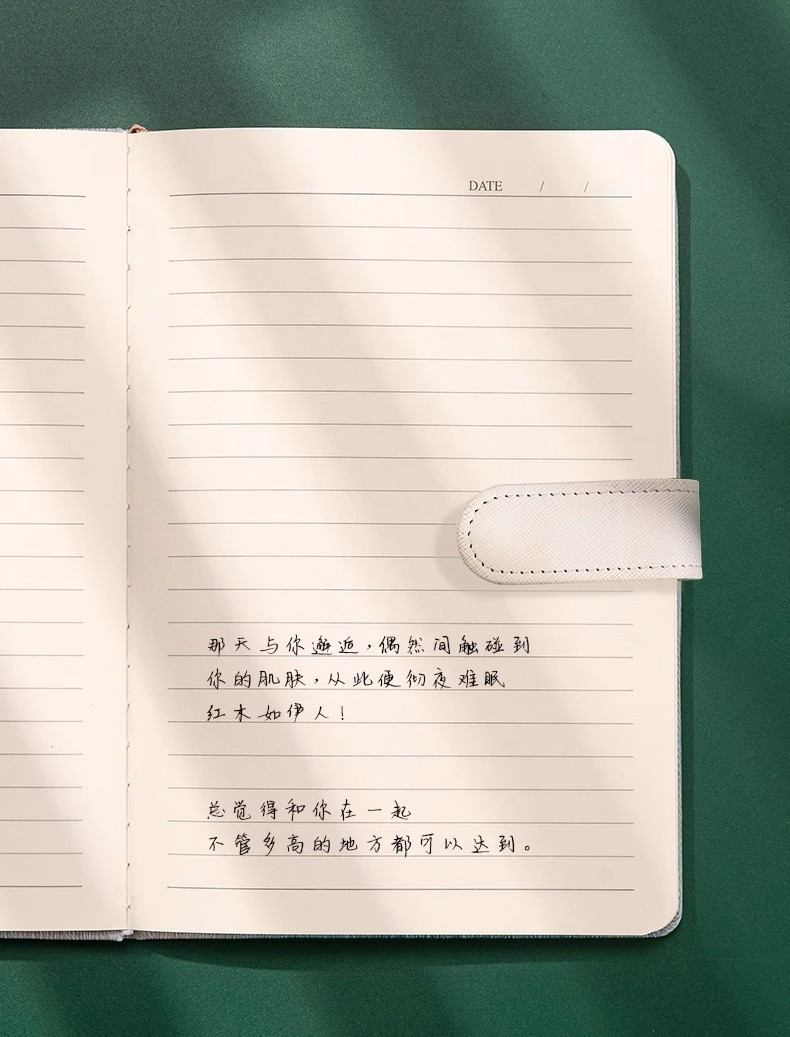 DATE / /
那天与你邂逅，偶然间触碰到
你的肌肤，从此便彻夜难眠
红木如伊人！
总觉得和你在一起
不管多高的地方都可以达到。